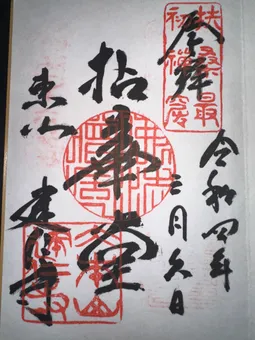 扶桑最
初禪窟
奉拝
令和四年
三月六日
拈華堂
東山
建仁寺